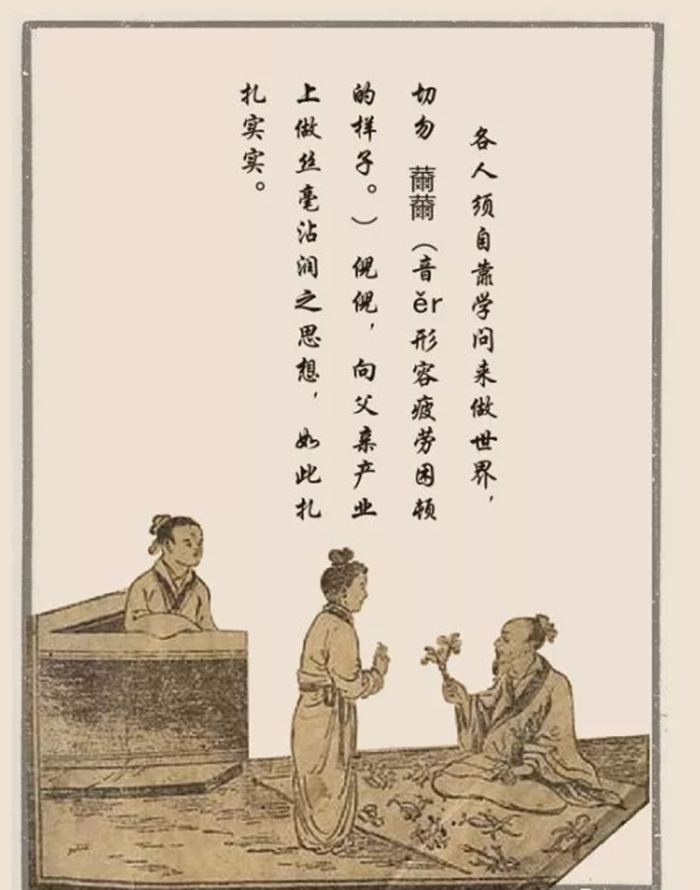 各人须自靠学问来做世界，
切勿 薾薾（音ěr形容疲劳困顿
的样子。）倪倪，向父亲产业
上做丝毫沾润之思想，如此扎
扎实实。